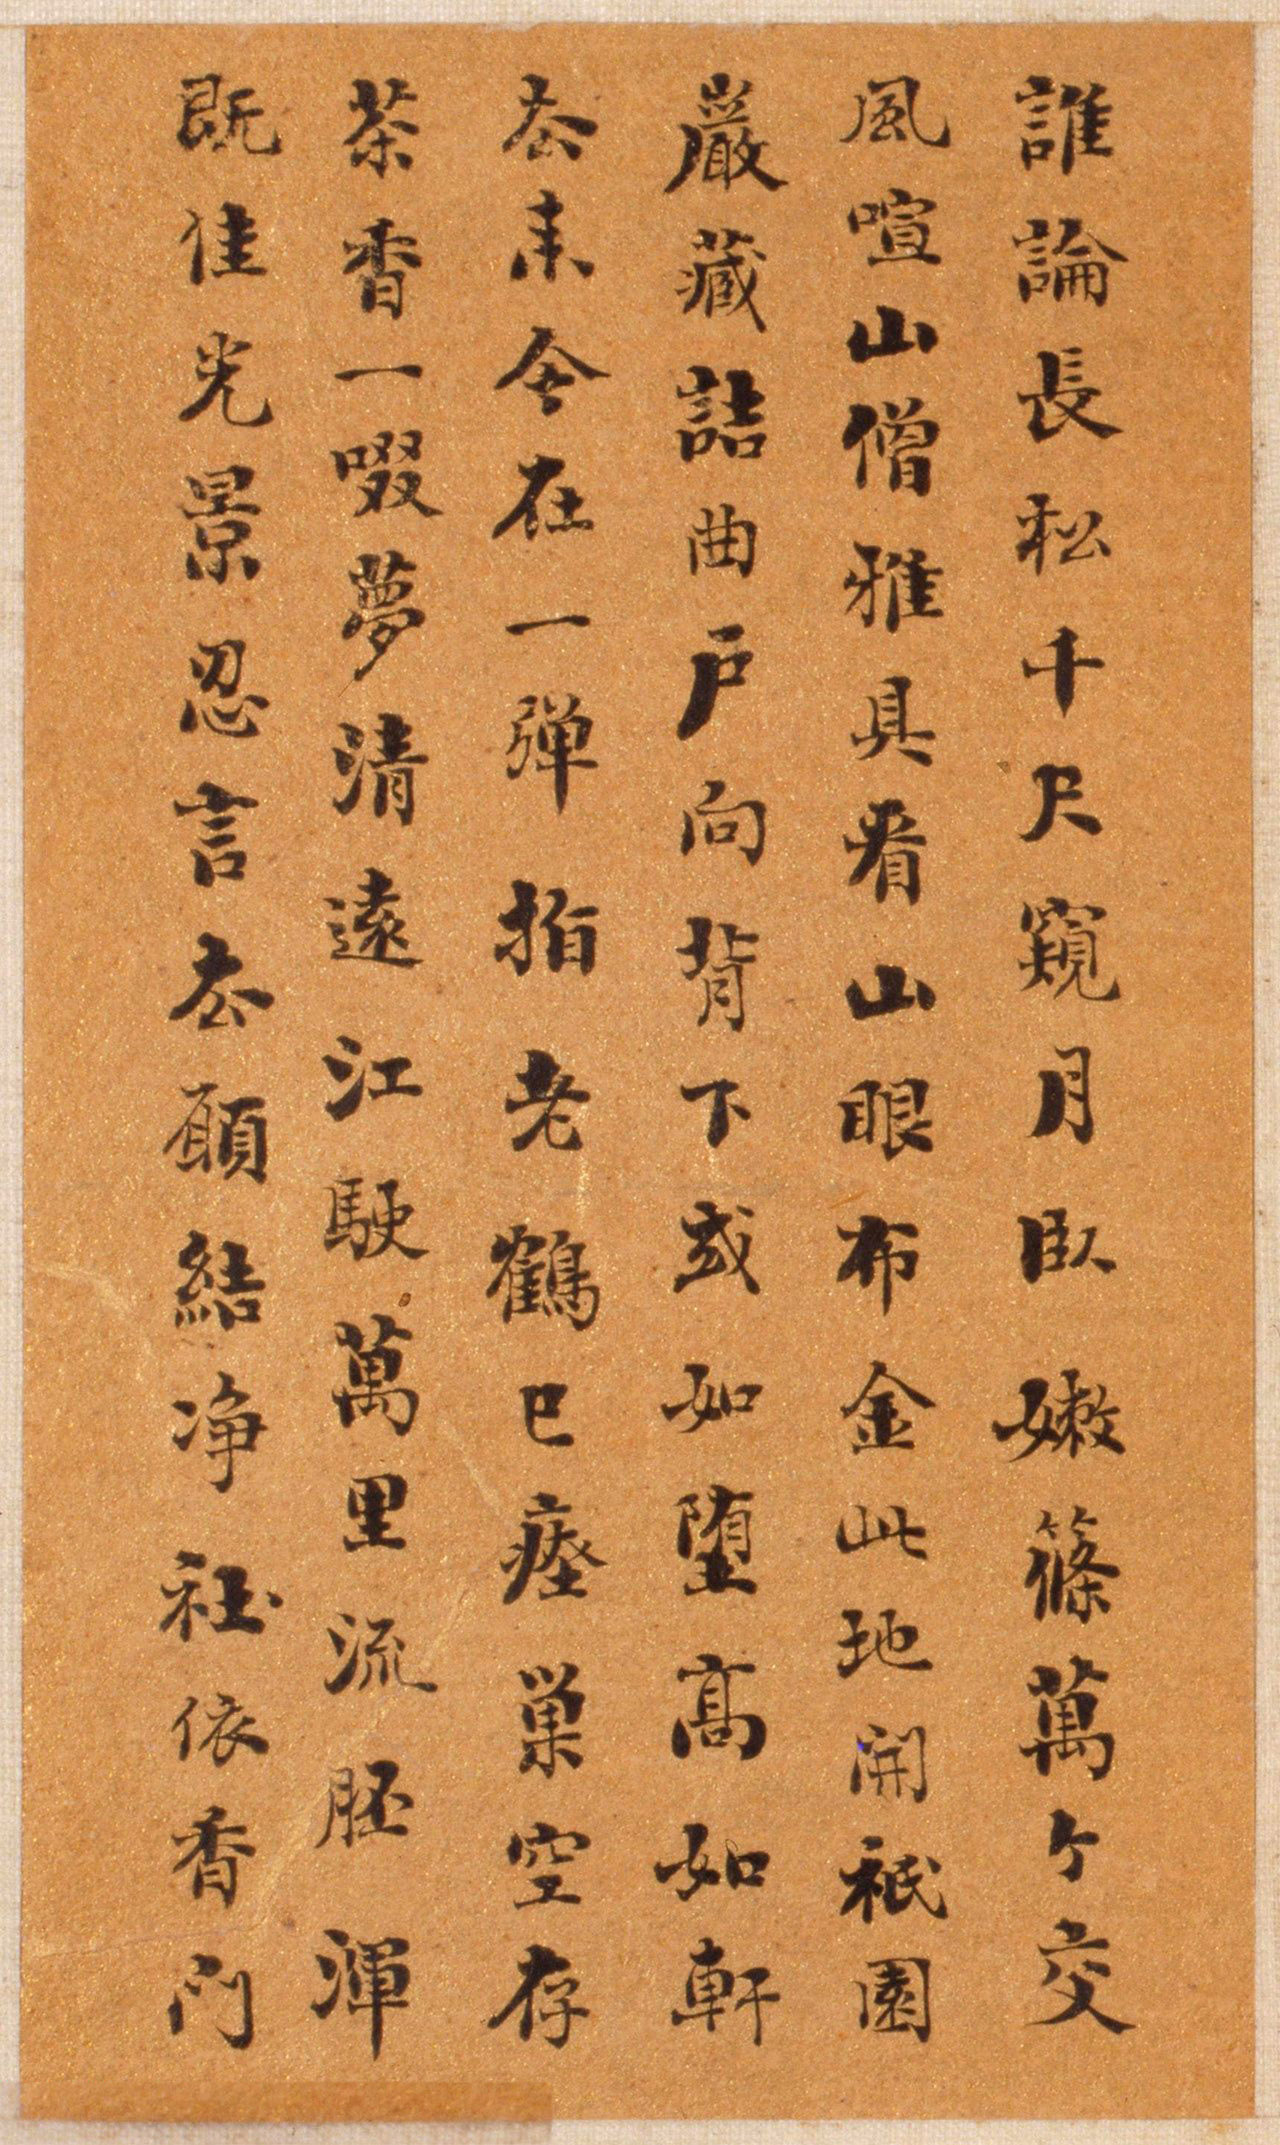 誰論長松千尺窺月臥嫩篠萬个交
風喧山僧雅具看山眼布金此地開祇園
巖藏詰曲戶向背下或如墮高如軒
去來今在一彈指老鶴已瘞巢空存
茶香一啜夢清遠江駛萬里流胚渾
既佳光景忍言去願結淨社依香門